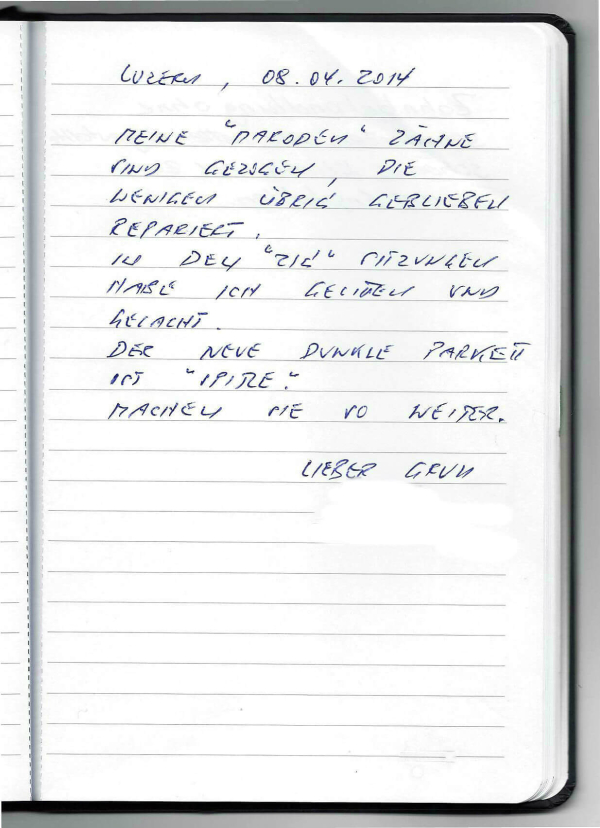 LUZERN, 08.04.2014
MEINE "MARODEN" ZÄHNE
SIND GEZOGEN, DIE
WENIGEN ÜBRIG GEBLIEBEN
REPARIERT.
IN DEN "ZIG" SITZUNGEN
HABE ICH GELITTEN UND
GELACHT.
DER NEUE DUNKLE PARKETT
IST "SPITZE".
MACHEN SIE SO WEITER.
LIEBER GRUSS